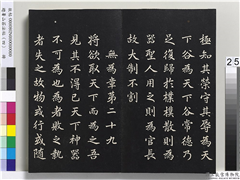 極知其榮守其辱為天
下谷為天下谷常德乃
足復歸於樸樸散則為
器聖人用之則為官長
故大制不割
無為章第二十九
將欲取天下而為之吾
見其不得已天下神器
不可為也為者敗之執
者失之故物或行或隨
25